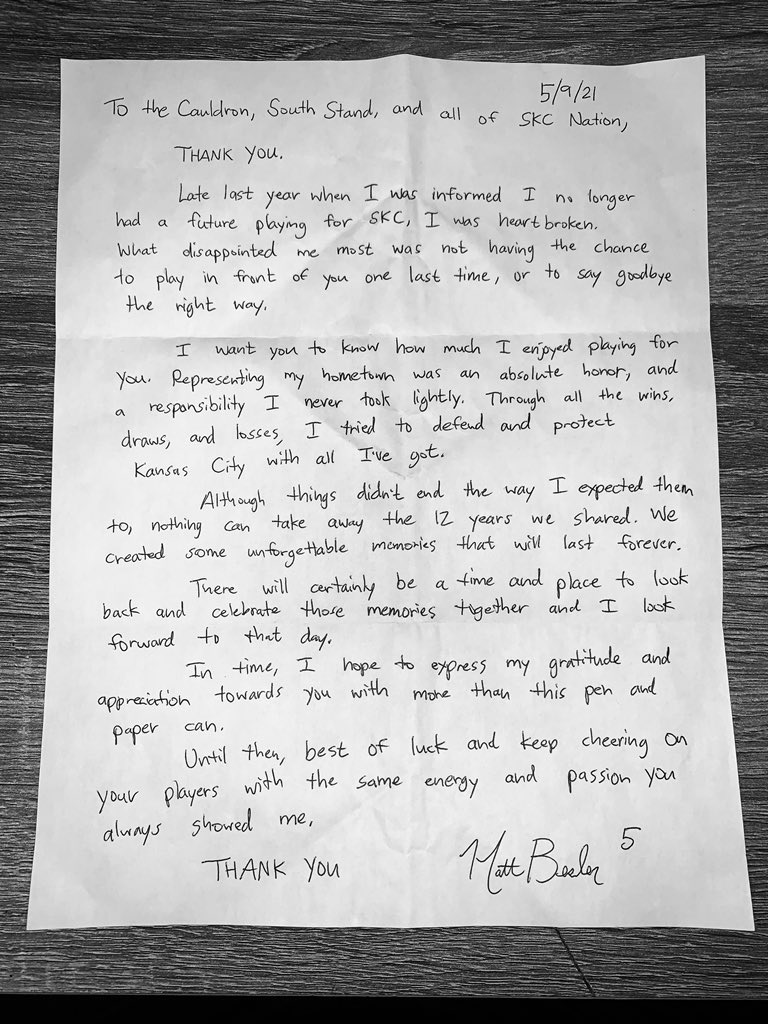 5/9/21
To the Cauldron, South Stand, and all of SKC Nation,
THANK YOU.
Late last year when I was informed I no longer
had a future playing for SKC, I was heartbroken.
What disappointed me most was not having the chance
to play in front of you one last time, or to say goodbye
the right way.
I want you to know how much I enjoyed playing for
you. Representing my hometown was an absolute honor, and
a responsibility I never took lightly. Through all the wins,
draws, and losses, I tried to defend and protect
Kansas City with all I've got.
Although things didn't end the way I expected them
to, nothing can take away the 12 years we shared. We
created some unforgettable memories that will last forever.
There will certainly be a time and place to look
back and celebrate those memories together and I look
forward to that day.
In time, I hope to express my gratitude and
appreciation towards you with more than this pen and
paper can.
Until then, best of luck and keep cheering on
your players with the same energy and passion you
always showed me.
THANK YOU Matt Besler 5